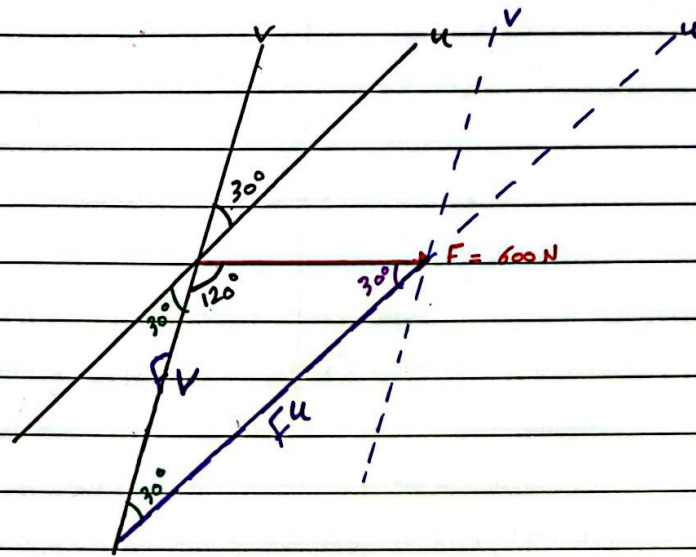 v
u
v
u
30°
F = 600 N
30°
120°
30°
F v
F u
30°